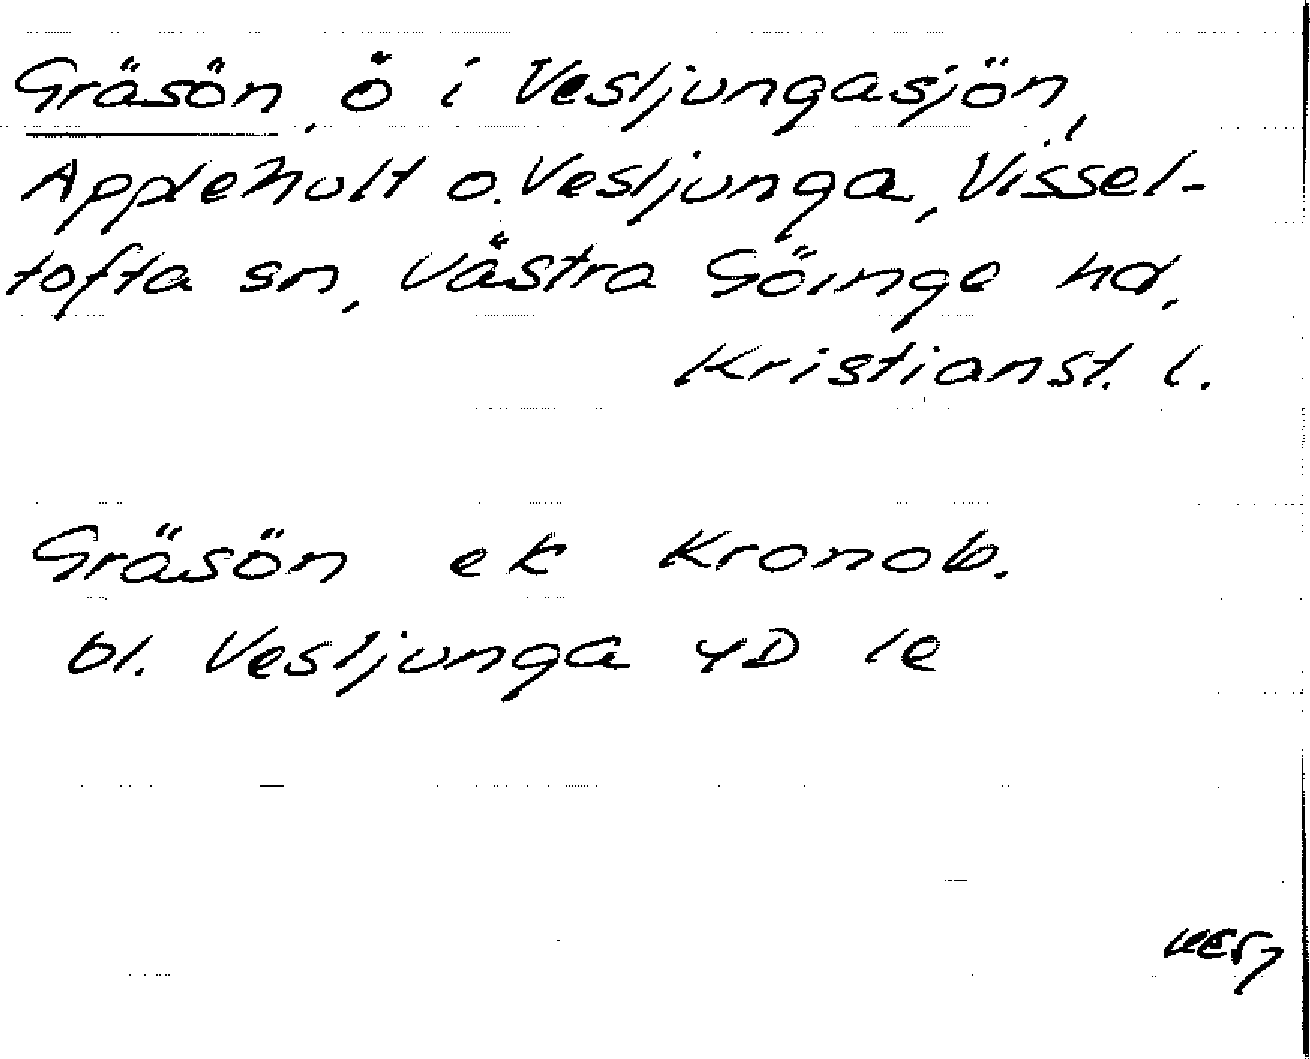 Gräsön, ö i Vesljungasjön,
Applehult o. Vesljunga, Vissel-
tofta sn, Västra Göinge hd,
Kristianst. l.
Gräsön ek Kronob.
bl. Vesljunga 4D 1e